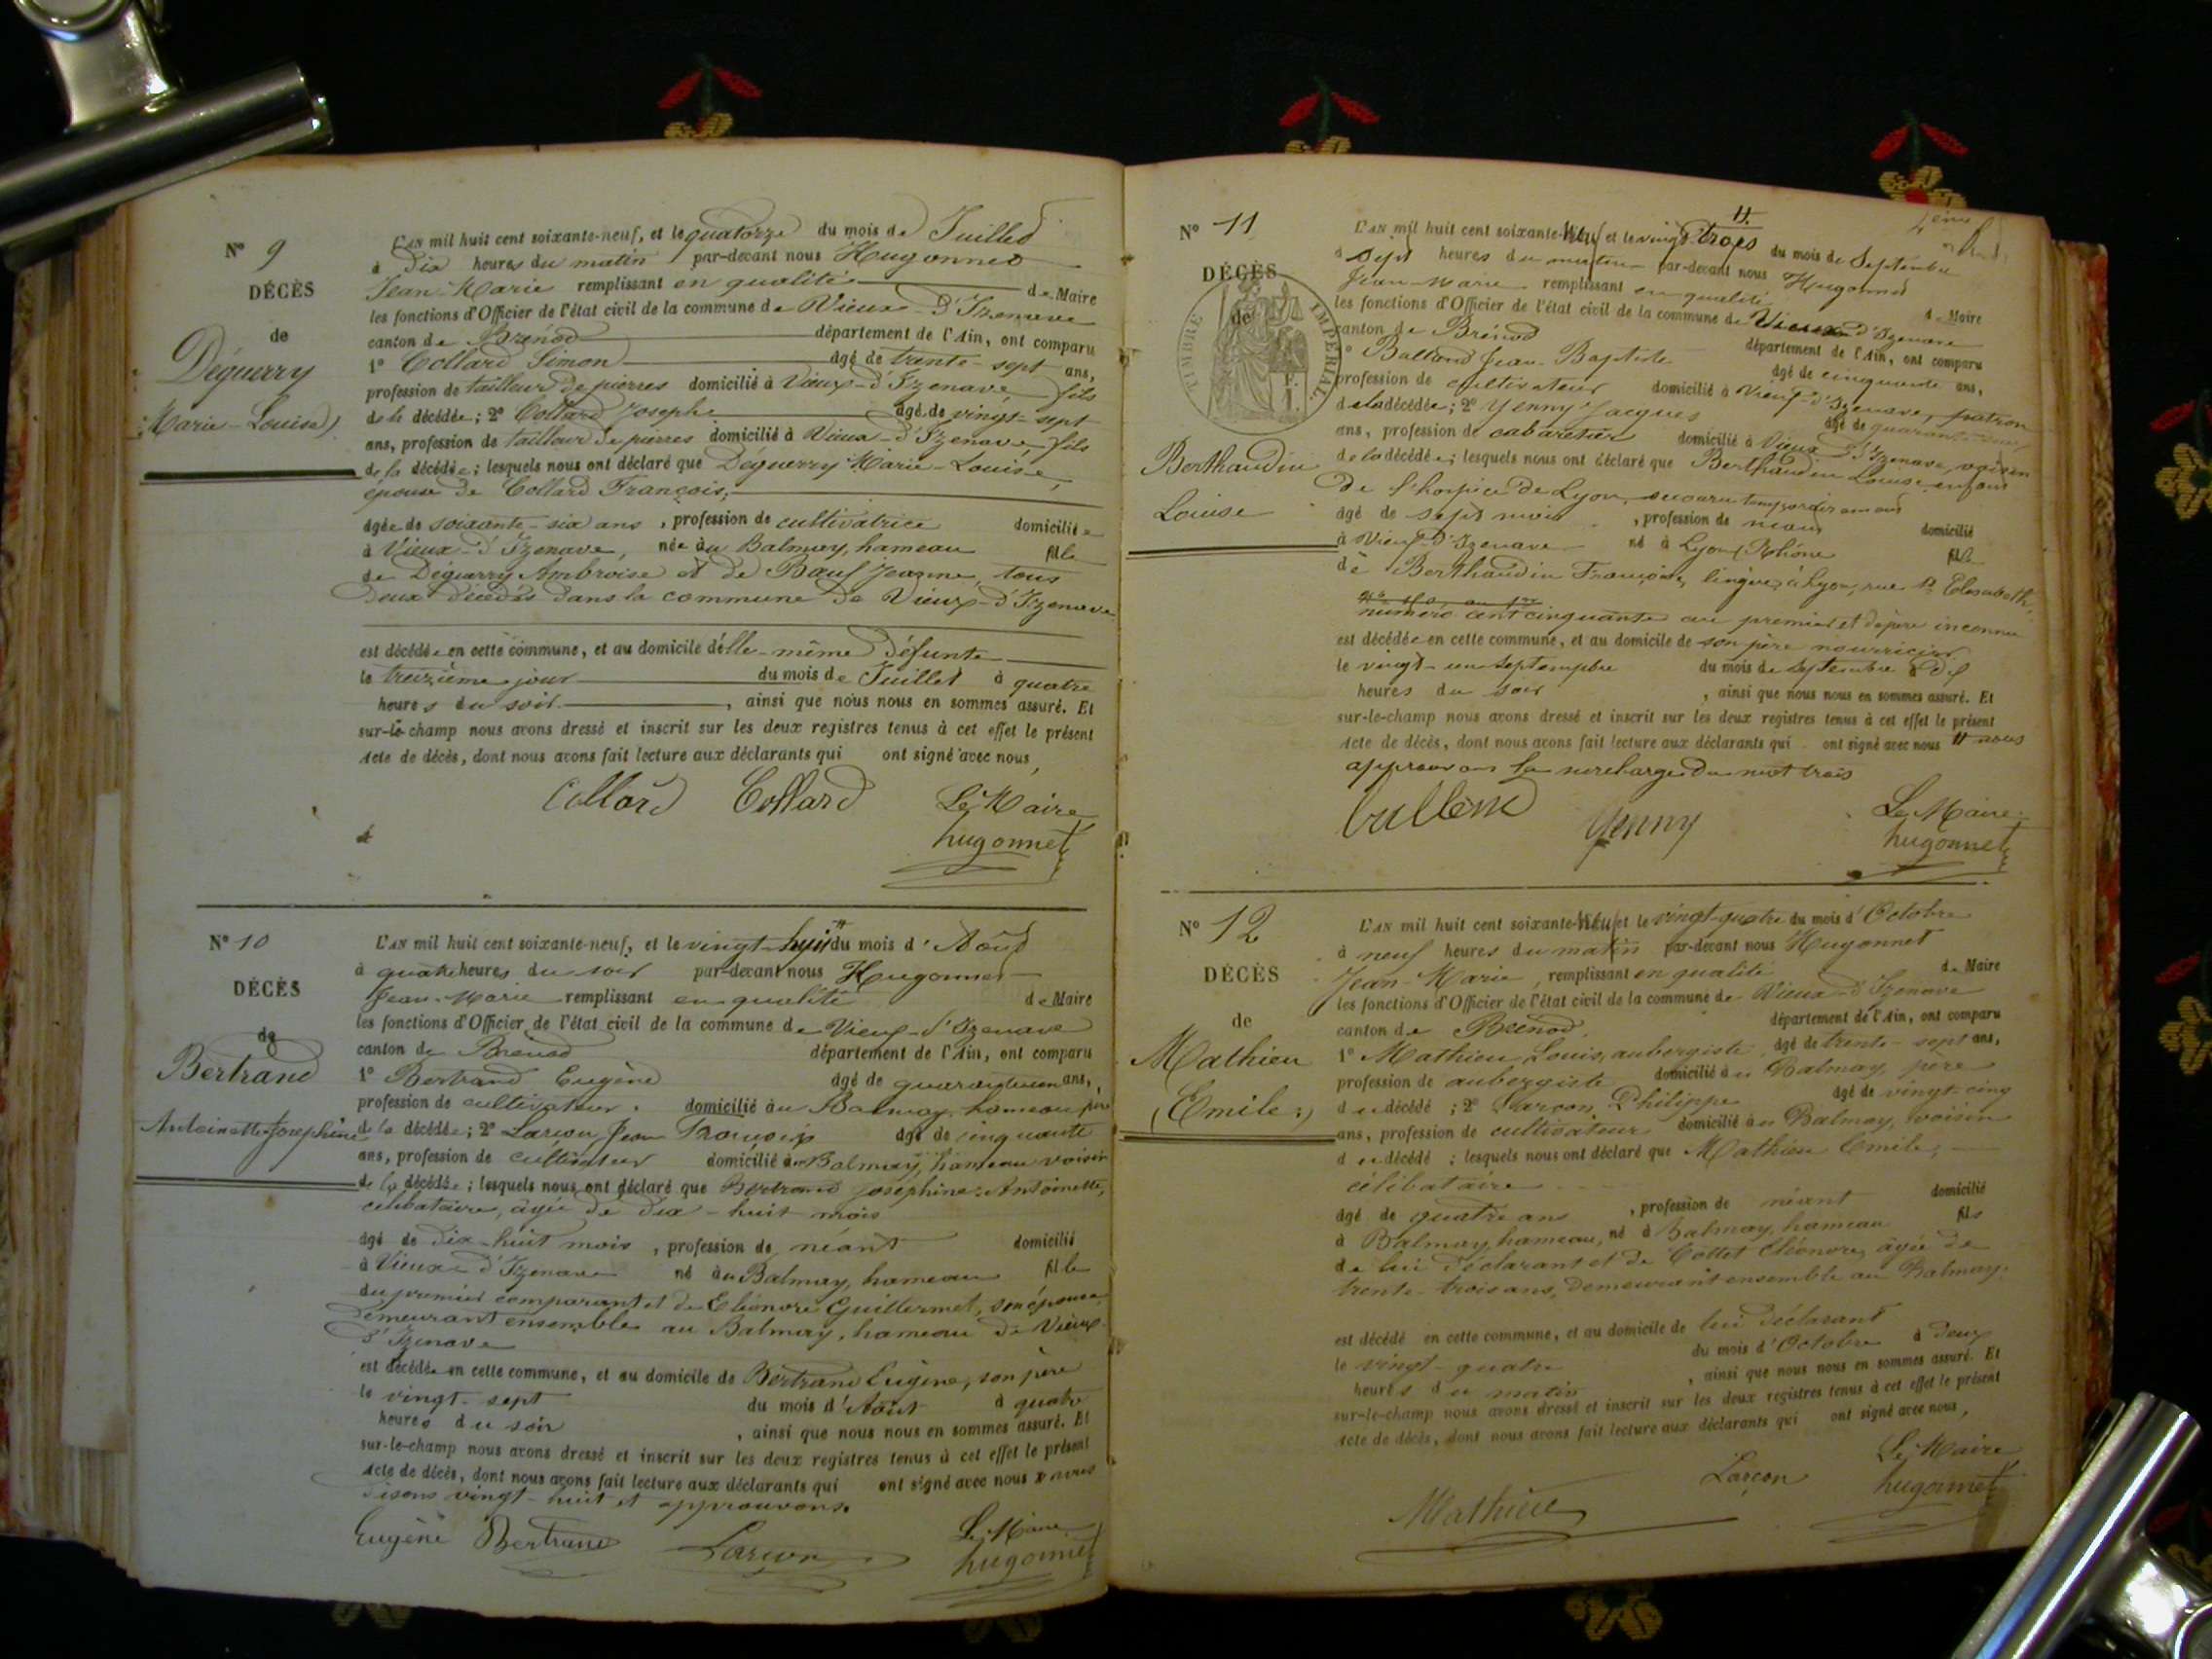 N° 9
DÉCÈS
de
Déguerry
Marie-Louise
L'AN mil huit cent soixante-neuf, et le quatorze du mois de Juillet
à Dix heures du matin par-devant nous Hugonnet
Jean-Marie remplissant en qualité de Maire
les fonctions d'Officier de l'état civil de la commune de Vieux-d'Izenave
canton de Brénod département de l'Ain, ont comparu
1° Collard Simon âgé de trente-sept ans,
profession de tailleur de pierres domicilié à Vieux-d'Izenave, fils
de la décédée; 2° Collard Joseph âgé de vingt-sept
ans, profession de tailleur de pierres domicilié à Vieux-d'Izenave, fils
de la décédée; lesquels nous ont déclaré que Déguerry Marie-Louise,
épouse de Collard François,
âgée de soixante-six ans, profession de cultivatrice domiciliée
à Vieux-d'Izenave, née au Balmay, hameau fille
de Déguerry Ambroise et de Bauf Jeanne, tous
deux décédés dans la commune de Vieux-d'Izenave
est décédée en cette commune, et au domicile d'elle-même défunte
le treizième jour du mois de Juillet à quatre
heures du soir, ainsi que nous nous en sommes assuré. Et
sur-le-champ nous avons dressé et inscrit sur les deux registres tenus à cet effet le présent
Acte de décès, dont nous avons fait lecture aux déclarants qui ont signé avec nous,
Collard Collard Le Maire
hugonnet
N° 10
DÉCÈS
de
Bertrand
Antoinette Josephine
L'AN mil huit cent soixante-neuf, et le vingt-huit du mois d'Août
à quatre heures du soir par-devant nous Hugonnet
Jean-Marie remplissant en qualité de Maire
les fonctions d'Officier de l'état civil de la commune de Vieux-d'Izenave
canton de Brénod département de l'Ain, ont comparu
1° Bertrand Eugène âgé de ans,
profession de cultivateur domicilié au Balmay, hameau père
de la décédée; 2° Larçon Jean François âgé de cinquante
ans, profession de cultivateur domicilié au Balmay, hameau voisin
de la décédée; lesquels nous ont déclaré que Bertrand Josephine-Antoinette,
célibataire, âgée de dix-huit mois
âgé de dix-huit mois, profession de néant domicilié
à Vieux-d'Izenave né au Balmay, hameau fille
du premier comparant et de Eléonore Guillermet, son épouse
demeurant ensemble au Balmay, hameau de Vieux-
d'Izenave
est décédée en cette commune, et au domicile de Bertrand Eugène, son père
le vingt-sept du mois d'Août à quatre
heures du soir, ainsi que nous nous en sommes assuré. Et
sur-le-champ nous avons dressé et inscrit sur les deux registres tenus à cet effet le présent
Acte de décès, dont nous avons fait lecture aux déclarants qui ont signé avec nous nous
disons vingt-huit et approuvons.
Eugène Bertrand Larçon Le Maire
hugonnet
N° 11
DÉCÈS
de
TIMBRE IMPÉRIAL
Berthaudin
Louise
L'AN mil huit cent soixante-neuf et le vingt trois du mois de Septembre
à sept heures du matin par-devant nous Hugonnet
Jean-Marie remplissant en qualité de Maire
les fonctions d'Officier de l'état civil de la commune de Vieux d'Izenave
canton de Brénod département de l'Ain, ont comparu
1° Balland Jean-Baptiste âgé de cinquante ans,
profession de cultivateur domicilié à Vieux-d'Izenave, patron
de la décédée; 2° Yenny Jacques âgé de
ans, profession de cabaretier domicilié à Vieux d'Izenave, voisin
de la décédée; lesquels nous ont déclaré que Berthaudin Louise enfant
de l'hospice de Lyon, secouru temporairement
âgé de sept mois, profession de néant domicilié
à Vieux-d'Izenave né à Lyon (Rhône fille
de Berthaudin Françoise, lingère, à Lyon, rue Ste Elisabeth,
numéro cent cinquante au premier et de père inconnu
est décédée en cette commune, et au domicile de son père nourricier
le vingt-un septembre du mois de Septembre à dix
heures du soir, ainsi que nous nous en sommes assuré. Et
sur-le-champ nous avons dressé et inscrit sur les deux registres tenus à cet effet le présent
Acte de décès, dont nous avons fait lecture aux déclarants qui ont signé avec nous nous
approuvons la surcharge du mot trois
Yenny Le Maire
hugonnet
N° 12
DÉCÈS
de
Mathieu
(Emile)
L'AN mil huit cent soixante-neuf et le vingt-quatre du mois d'Octobre
à neuf heures du matin par-devant nous Hugonnet
Jean-Marie, remplissant en qualité de Maire
les fonctions d'Officier de l'état civil de la commune de Vieux-d'Izenave
canton de Brénod département de l'Ain, ont comparu
1° Mathieu Louis, aubergiste âgé de trente-sept ans,
profession de aubergiste domicilié au Balmay, père
du décédé; 2° Larçon Philippe âgé de vingt-cinq
ans, profession de cultivateur domicilié au Balmay, voisin
du décédé; lesquels nous ont déclaré que Mathieu Emile,
célibataire
âgé de quatre ans, profession de néant domicilié
à Balmay, hameau, né à Balmay, hameau fils
de lui déclarant et de Collet Eléonore, âgée de
trente-trois ans, demeurant ensemble au Balmay,
est décédé en cette commune, et au domicile de lui déclarant
le vingt-quatre du mois d'Octobre à deux
heures du matin, ainsi que nous nous en sommes assuré. Et
sur-le-champ nous avons dressé et inscrit sur les deux registres tenus à cet effet le présent
Acte de décès, dont nous avons fait lecture aux déclarants qui ont signé avec nous,
Mathieu Larçon Le Maire
hugonnet